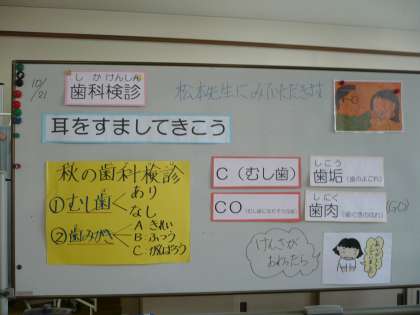 10/21
しかけんしん
歯科検診
松本先生にみていただきます
耳をすましてきこう
秋の歯科検診
①むし歯
あり
なし
②歯みがき
A きれい
B ふつう
C がんばろう
C（むし歯）
CO
しこう
歯垢（歯のよごれ）
しにく
歯肉
(GO)
けんさが
おわったら